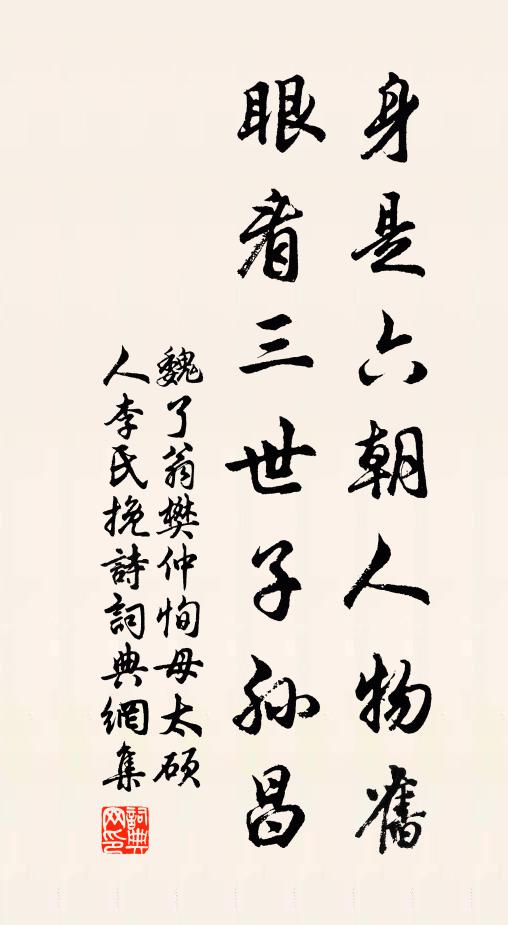 身是六朝人物舊
眼看三世子孫昌
魏了翁樊仲恂母太硕
人李氏挽詩詞典網集
詞典
网印